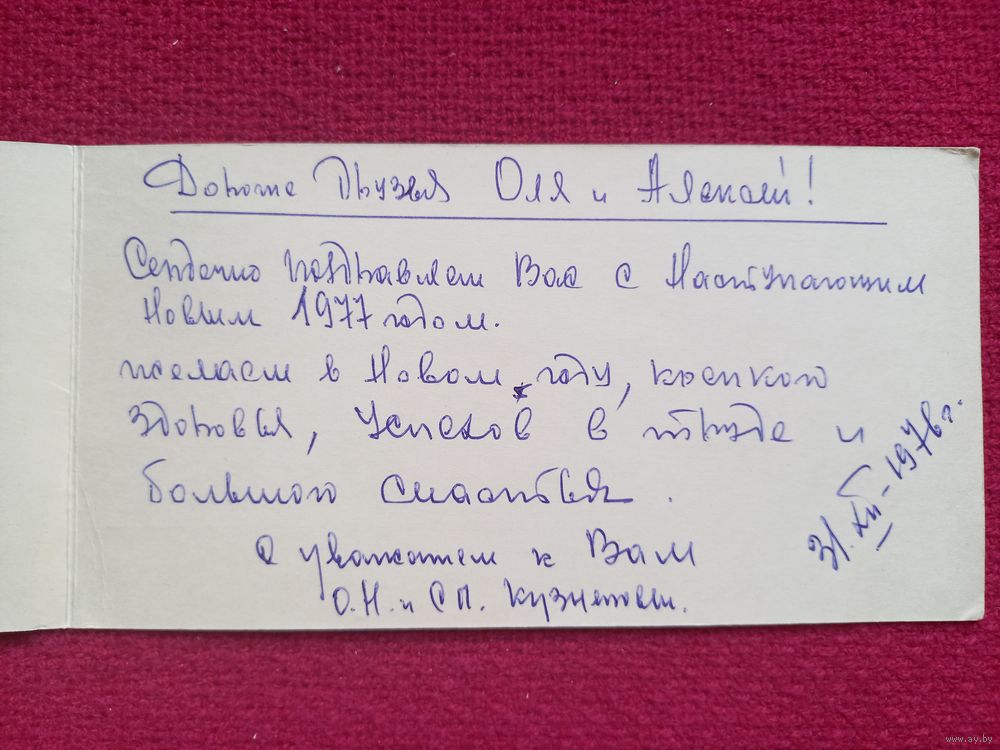 Дорогие Друзья Оля и Алексей!
Сердечно поздравляем Вас с Наступающим
Новым 1977 годом.
желаем в Новом году, крепкого
здоровья, успехов в труде и
большого счастья.
С уважением к Вам
О.Н. и С.П. Кузнецовы.
31.XII-1976 г.
www.ay.by